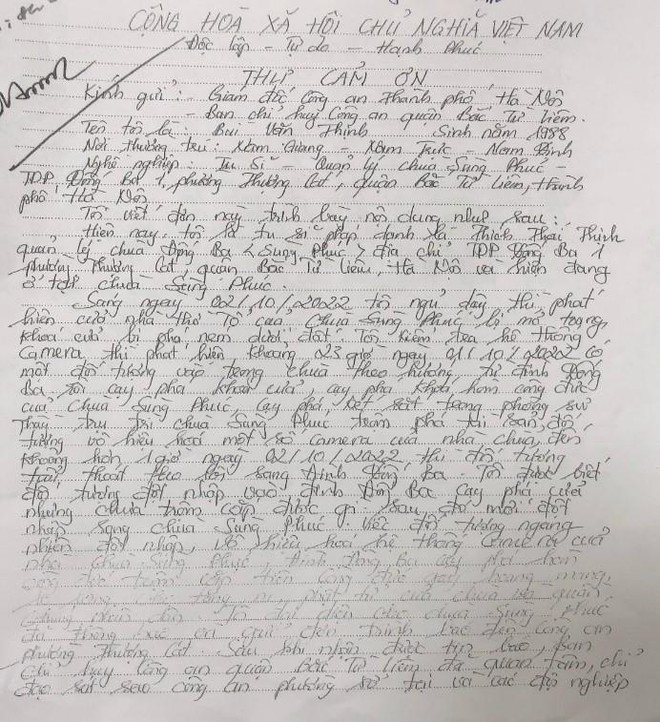 CỘNG HOÀ XÃ HỘI CHỦ NGHĨA VIỆT NAM
Độc lập - Tự do - Hạnh Phúc
THƯ CẢM ƠN
Kính gửi : - Giám đốc Công an Thành phố Hà Nội
- Ban chỉ huy Công an quận Bắc Từ Liêm.
Tên tôi là : Bùi Văn Thịnh Sinh năm 1988
Nơi thường trú : Nam Giang - Nam Trực - Nam Định
Nghề nghiệp : Tu sĩ - Quản lý chùa Sùng Phúc -
TDP Đống Ba 1, phường Thượng Cát, quận Bắc Từ Liêm, thành
phố Hà Nội
Tôi viết đơn này trình bày nội dung như sau :
Hiện nay, tôi là tu sĩ pháp danh là Thích Thái Thịnh
quản lý chùa Đống Ba < Sùng Phúc > địa chỉ TDP Đống Ba 1
phường Thượng Cát, quận Bắc Từ Liêm, Hà Nội và hiện đang
ở tại chùa Sùng Phúc.
Sáng ngày 02/10/2022 tôi ngủ dậy thì phát
hiện cửa nhà thờ Tổ của Chùa Sùng Phúc bị mở toang,
khoá cửa bị phá, ném dưới đất. Tôi kiểm tra hệ thống
Camera thì phát hiện khoảng 23 giờ ngày 01/10/2022 có
một đối tượng vào trong chùa theo hướng từ đình Đống
Ba tới cạy phá khoá cửa, cạy phá khoá hòm công đức
của Chùa Sùng Phúc, cạy phá két sắt trong phòng sư
Thầy trụ trì chùa Sùng Phúc trộm phá tài sản, đối
tượng vô hiệu hoá một số camera của nhà chùa, đến
khoảng hơn 1 giờ ngày 02/10/2022 thì đối tượng
tẩu thoát theo lối sang Đình Đống Ba. Tôi được biết
đối tượng đột nhập vào đình Đống Ba cạy phá cửa
nhưng chưa trộm cắp được gì sau đó mới đột
nhập sang chùa Sùng Phúc. Việc đối tượng ngang
nhiên đột nhập, vô hiệu hoá hệ thống camera của
nhà chùa Sùng Phúc, đình Đống Ba cạy phá hòm
công đức trộm cắp tiền công đức gây hoang mang,
phật tử của chùa và quần
chúng nhân dân. Tôi đại diện cho chùa Sùng Phúc
đã thông báo và gửi đơn trình báo đến Công an
phường Thượng Cát. Sau khi nhận được tin báo, Ban
Chỉ huy Công an quận Bắc Từ Liêm đã quan tâm, chỉ
đạo sát sao công an phường sở tại và các đội nghiệp